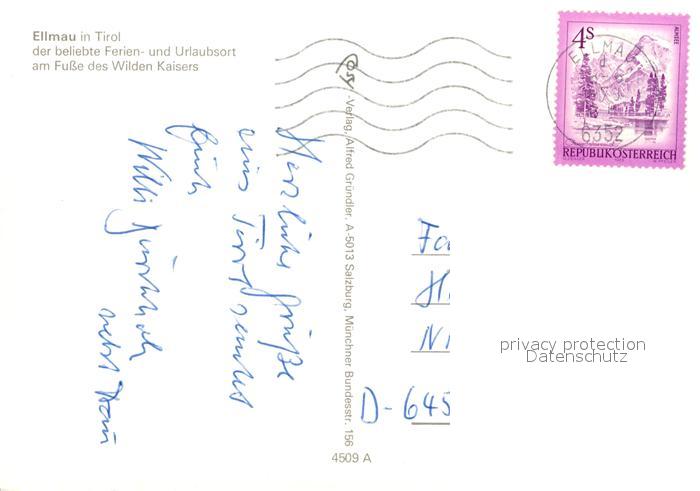 Ellmau in Tirol
der beliebte Ferien- und Urlaubsort
am Fuße des Wilden Kaisers
4 S
ALMSEE
REPUBLIK ÖSTERREICH
ELLMAU
6352
Cosy-Verlag, Alfred Gründler, A-5013 Salzburg, Münchner Bundesstr. 156
4509 A
Herzliche Grüße
aus Tirol sendet
Euch
Willi
nebst Frau
Fa
H
N
D-645
privacy protection
Datenschutz